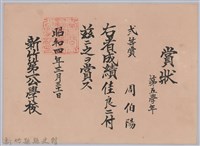 賞狀
第五學年
弍等賞
周伯陽
右者成績佳良ニ付
茲ニ之ヲ賞ス
昭和四年三月二十一日
新竹第一公學校